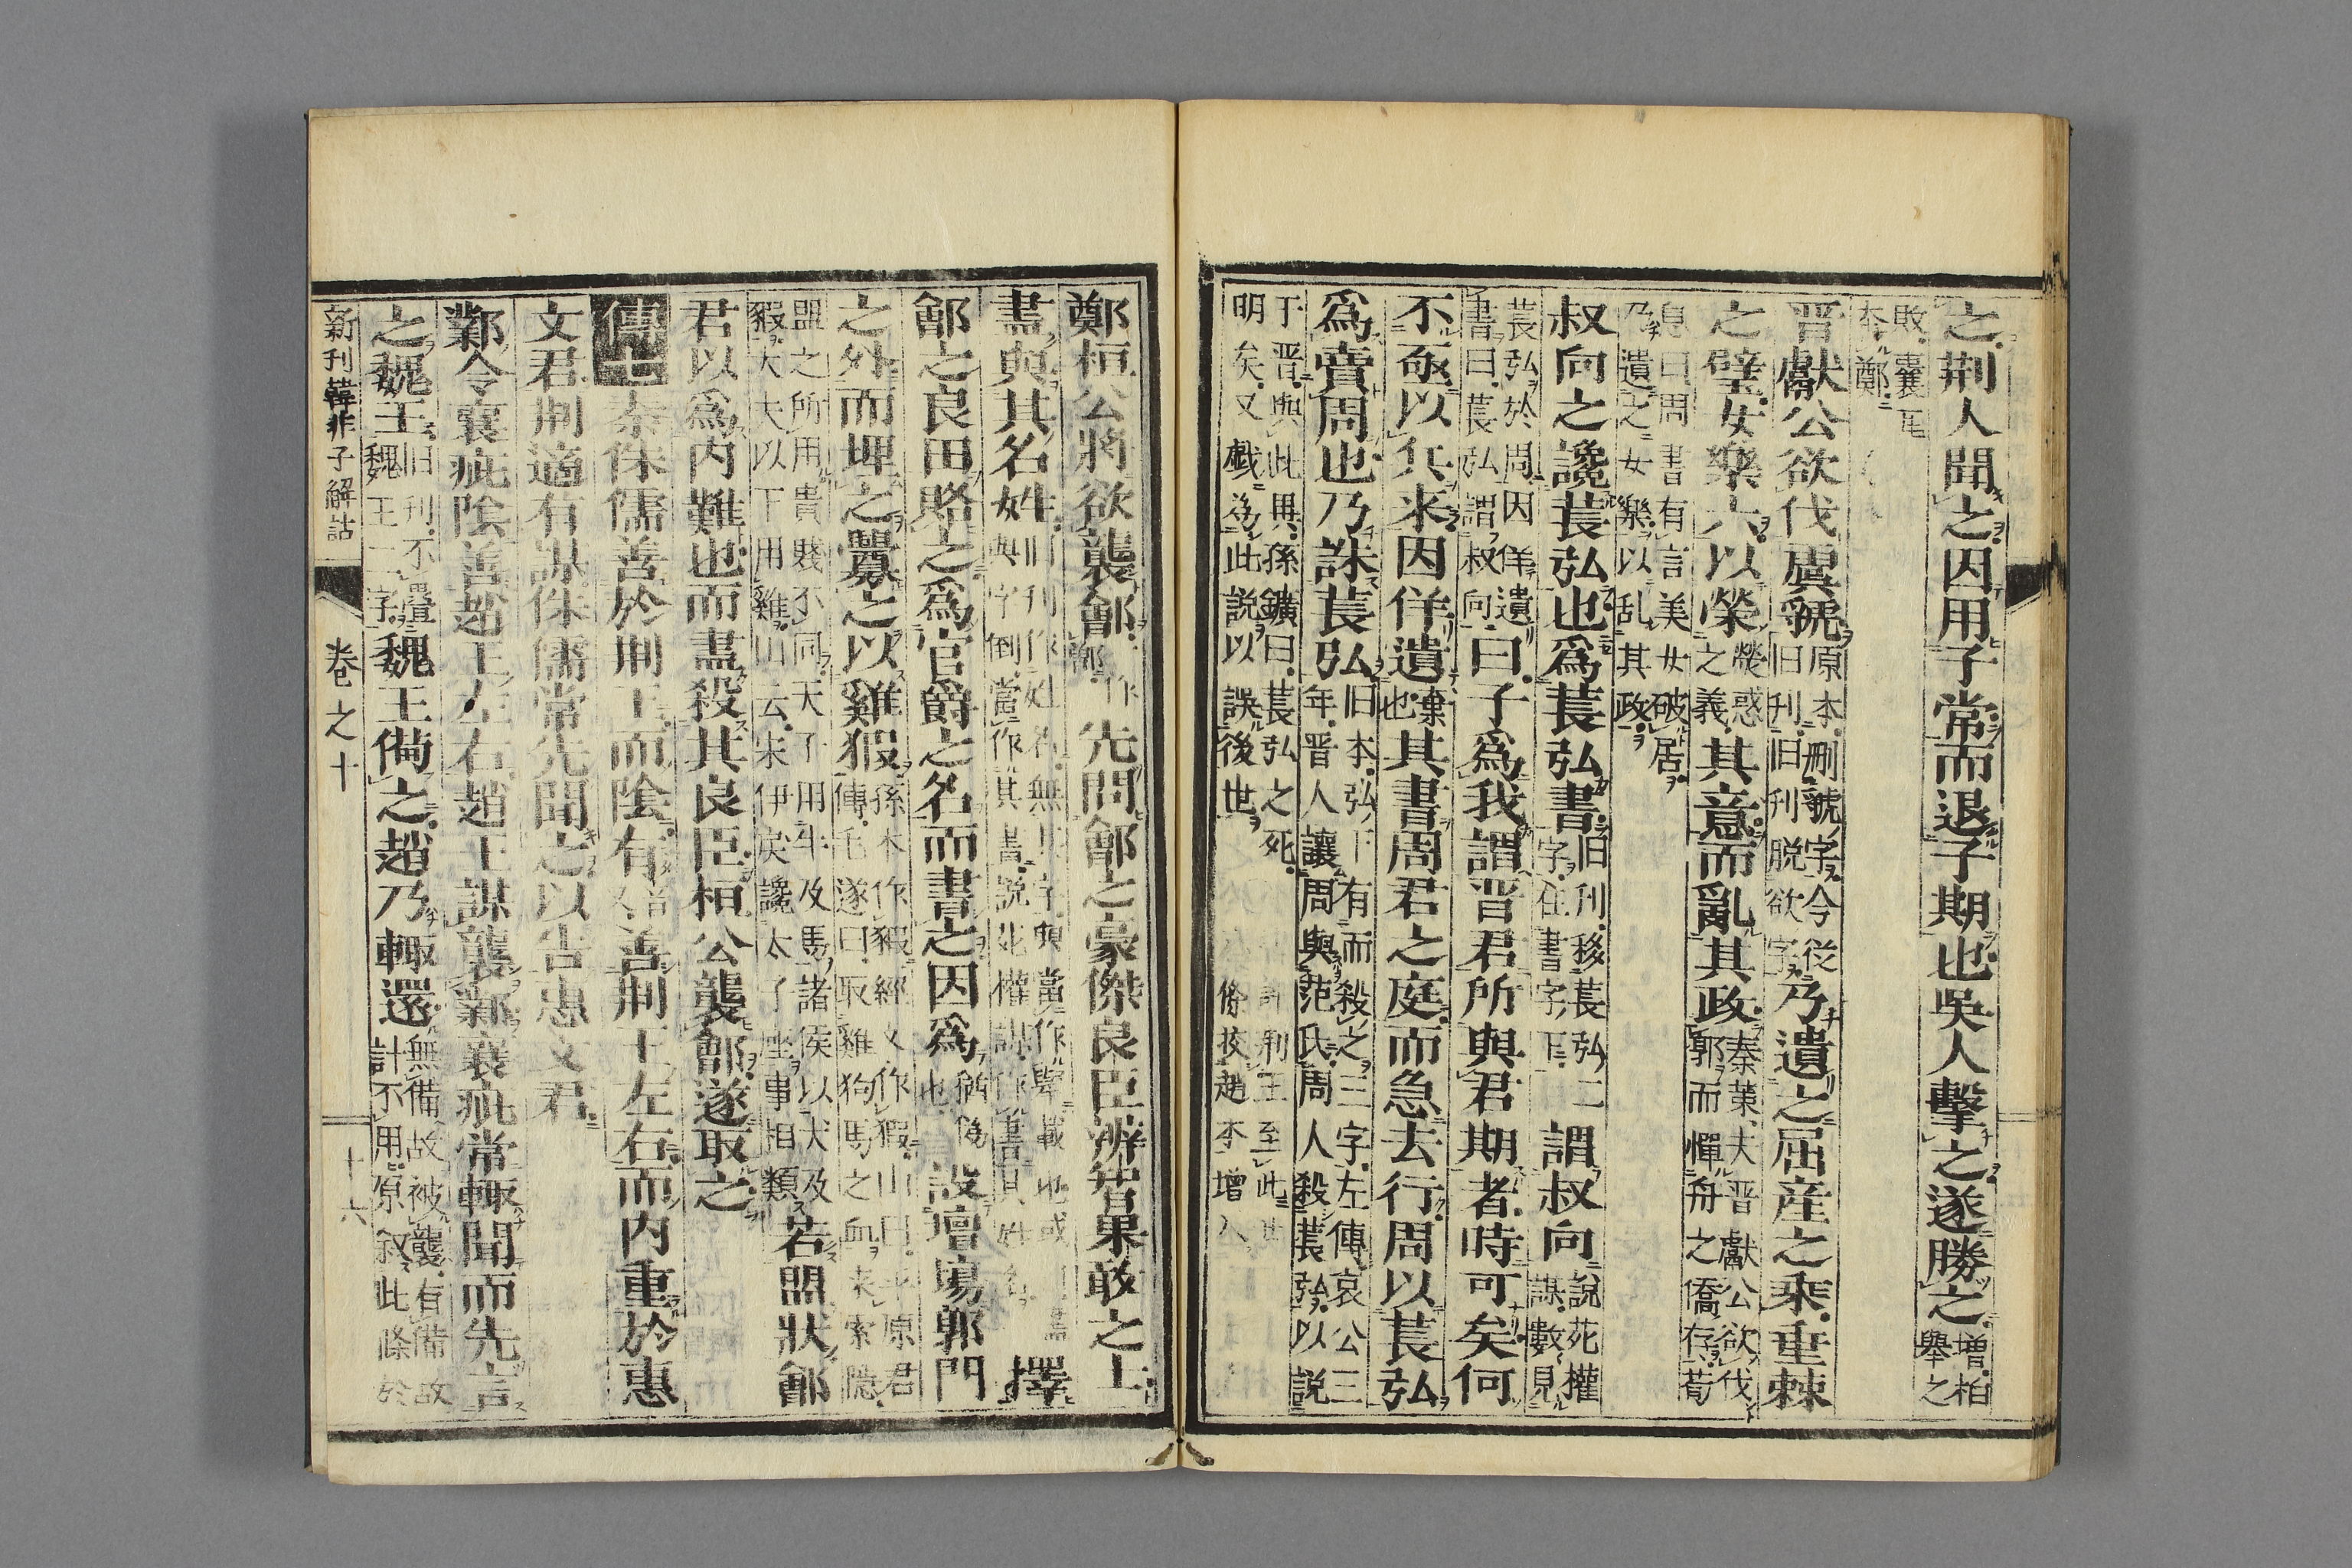 之荆人聞之因用子常而退子期也吳人擊之遂勝之増柏舉之
敗囊瓦
夲鄭
晋獻公欲伐虞虢原本刪虢字今從旧刊旧刊脱欲字乃遺之屈産之乘垂棘
之璧女樂六以榮熒惑之義其意而亂其政秦策夫晋獻公欲伐郭而憚舟之僑存荀
息曰周書有言美女破居乃遺之女樂以乱其政
叔向之讒萇弘也爲萇弘書旧刊移萇弘二字在書字下謂叔向説苑權謀數見
萇弘於周因佯遺書曰萇弘謂叔向曰子爲我謂晋君所與君期者時可矣何
不亟以兵来因佯遺其書周君之庭而急去行周以萇弘
爲賣周也乃誅萇弘旧本弘下有而殺之三字左傳哀公三年晋人讓周與范氏周人殺萇弘以説
于晋與此異孫鑛曰萇弘之死明矣又戲為此説以誤後世
荆王至此 條挍趙本增入
鄭桓公將欲襲鄶先問鄶之豪傑良臣辨智果敢之士
盡與其名姓擇
鄶之良田賂之爲官爵之名而書之因爲猶偽也設壇塲郭門
之外而埋之釁之以雞猳
盟之所用貴賤不同天子用牛及馬諸侯以犬及猳大夫以下用雞山云朱伊戻讒太子座事相類若盟狀鄶
君以爲内難也而盡殺其良臣桓公襲鄶遂取之
傳七秦侏儒善於荆王而陰有善荆王左右而内重於惠
文君荆適有謀侏儒常先聞之以告惠文君
鄴令襄疵陰善趙王左右趙王謀襲鄴襄疵常輙聞而先言
之魏王旧刊不疊魏王二字魏王備之趙乃輙還無備故被襲有備故計不用原叙此條於
新刊韓非子解詁 巻之十 十六